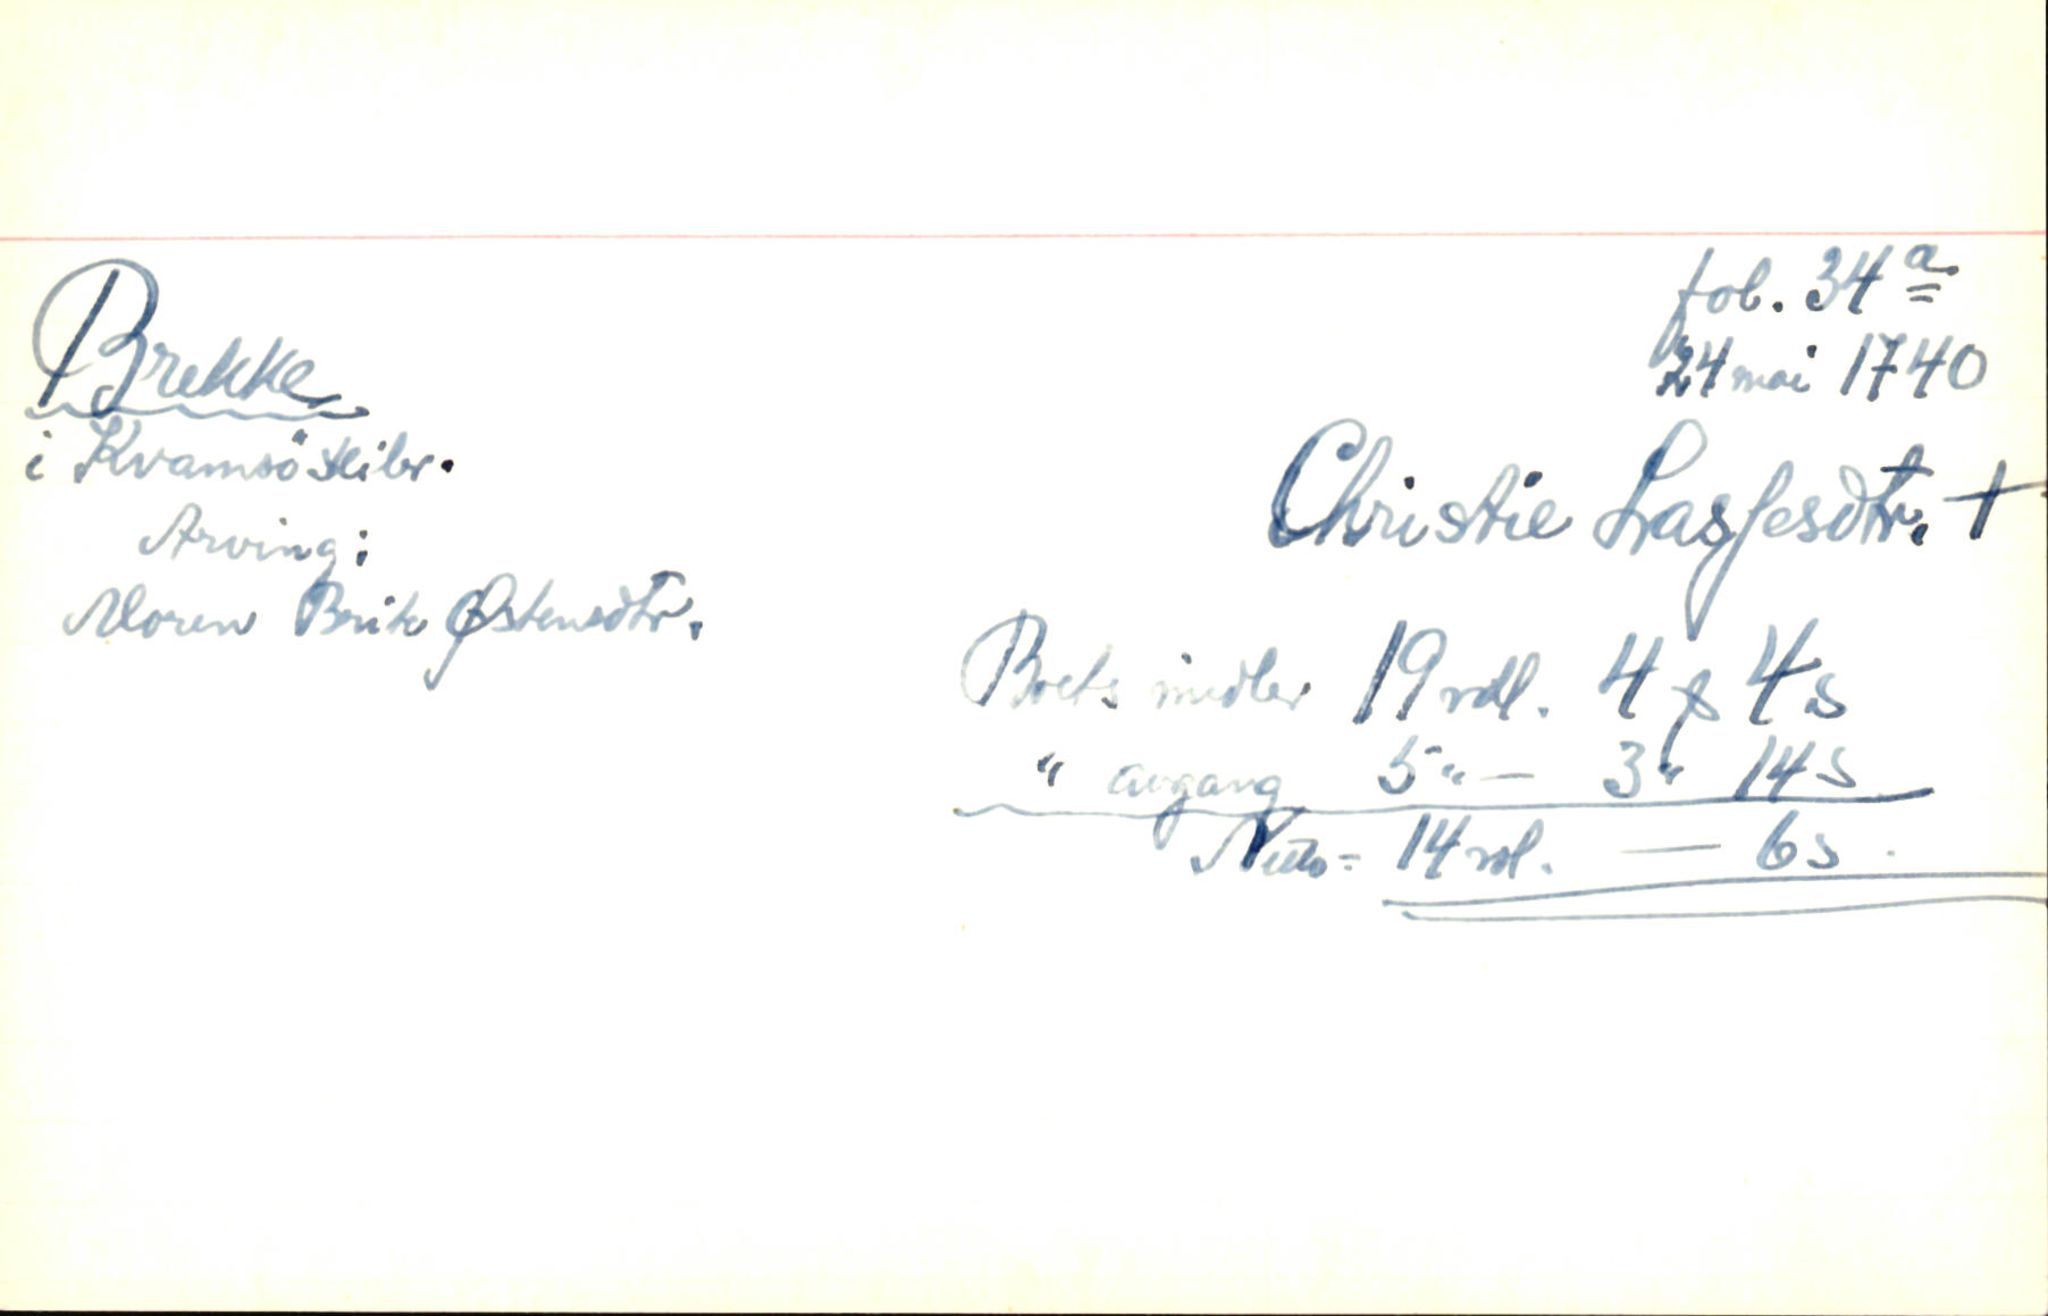 fol. 34 a
24 mai 1740
Brekke
i Kvamsö skibr.
Christie Lasses dtr. +
Arving:
Moren Brite Østensdtr.
Boets midler 19 rdl. 4 ƒ 4 s
" avgang 5 " — 3 " 14 s
Netto = 14 rdl. — 6 s.